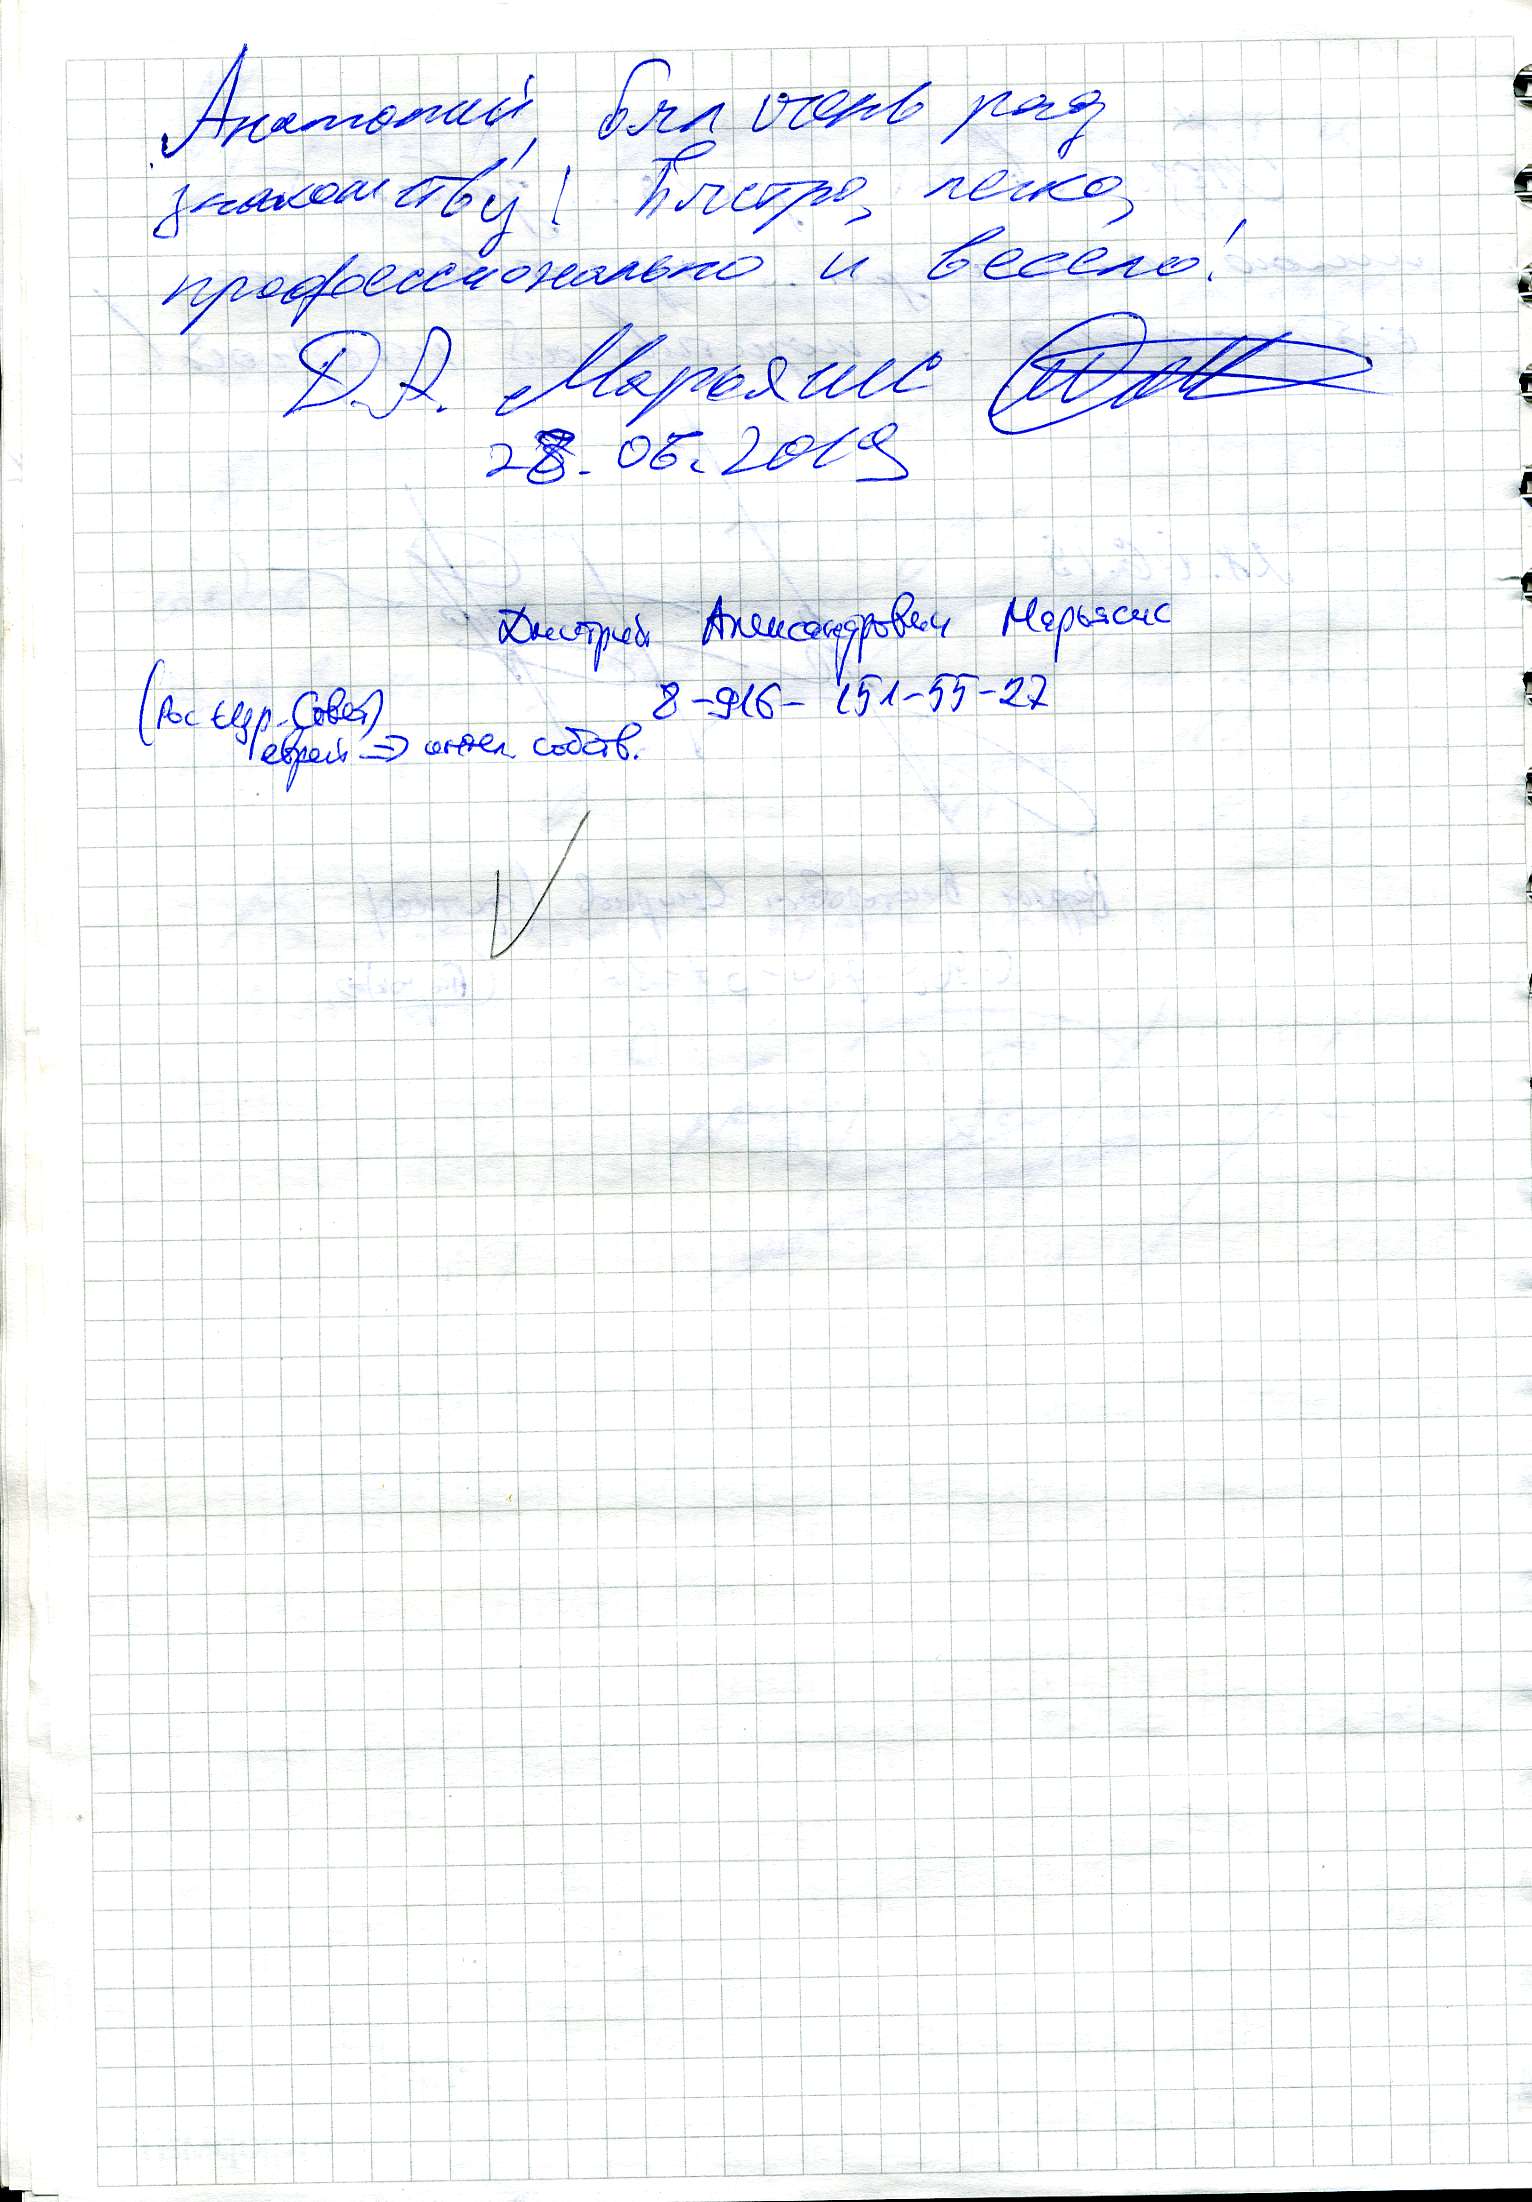 Анатолий, был очень рад
знакомству! Быстро, легко,
профессионально и весело!
Д.А. Марьясис
28.05.2019
Дмитрий Александрович Марьясис
8-916-151-55-27
(Рос Изр. Совет)
еврей => соств.